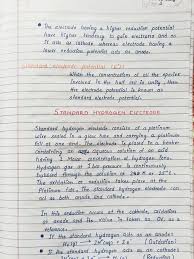 • The electrode having a higher reduction potential
have higher tendency to gain electrons and so
it acts as cathode whereas electrode having a
lower reduction potential acts as anode.
Standard electrode potential (E°)
When the concentration of all the species
involved in the half cell is unity, then
the electrode potential is known as
standard electrode potential.
STANDARD HYDROGEN ELECTRODE
Standard hydrogen electrode consists of a platinum
wire sealed in a glass tube and carrying a platinum
foil at one end. The electrode is placed in a beaker
containing an aqueous solution of an acid
having 1 Molar concentration of hydrogen ions.
Hydrogen gas at 1 bar pressure is continuously
bubbled through the solution at 298 K or 25°C.
The oxidation or reduction takes place at the
Platinum foil. The standard hydrogen electrode can
act as both anode and cathode.
In this reduction occurs at the cathode, oxidation
at anode and the value is taken as 0V, as a
reference.
• If the standard hydrogen acts as an anode:
H₂(g) → 2H⁺(aq) + 2e⁻ (Oxidation)
• If the standard hydrogen acts as a cathode:
2e⁻ (Reduction)